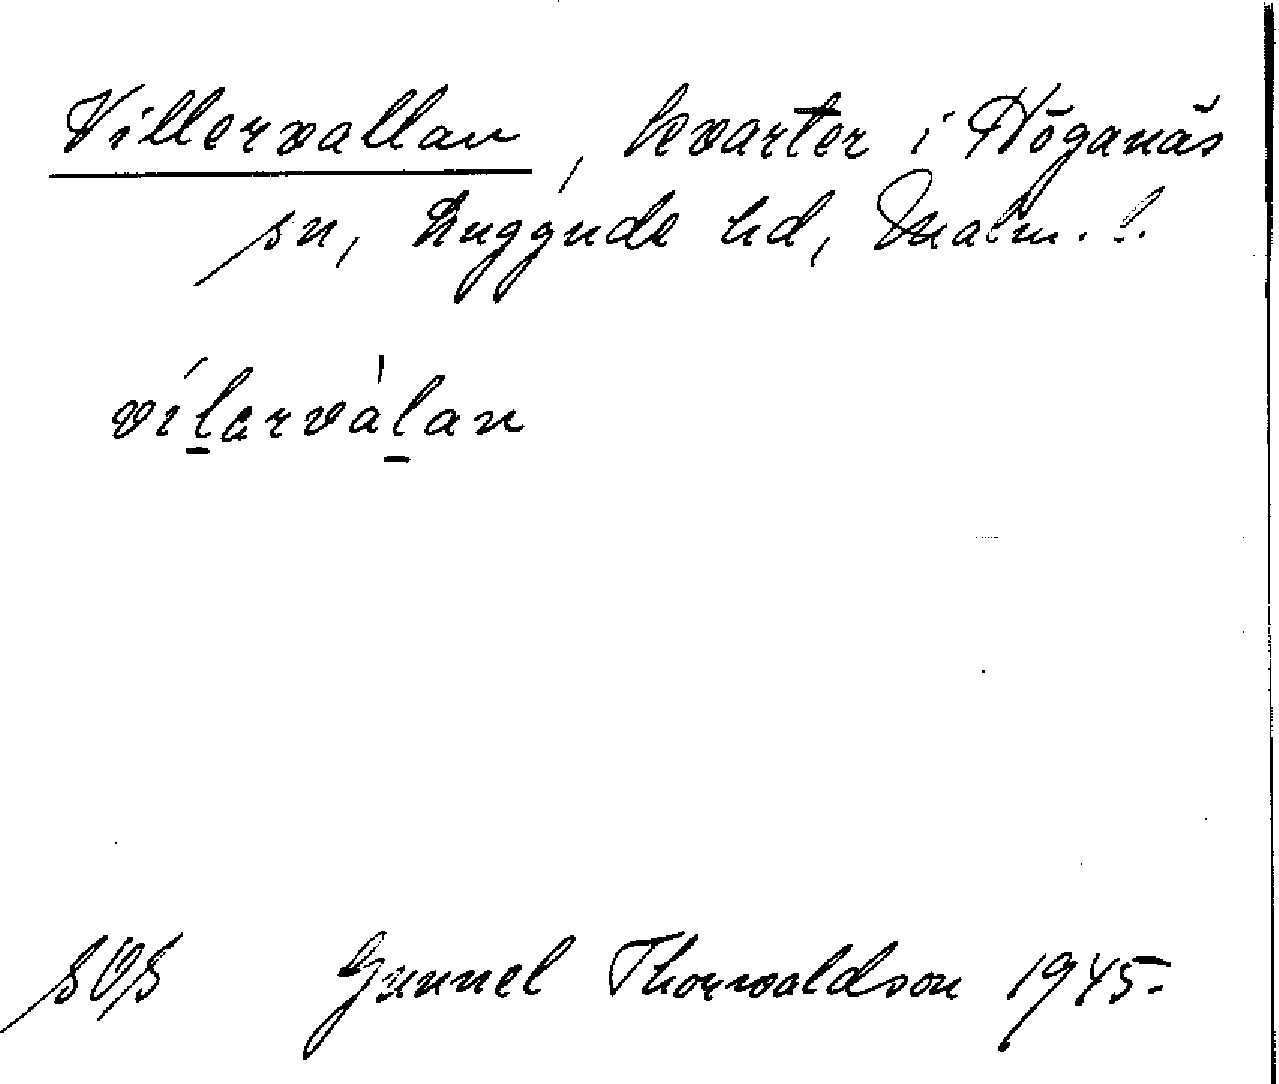 Villervallan, kvarter i Höganäs
sn, Luggude hd, Malm. l.
vílarvàlan
SOS Gunnel Thorwaldson 1945.